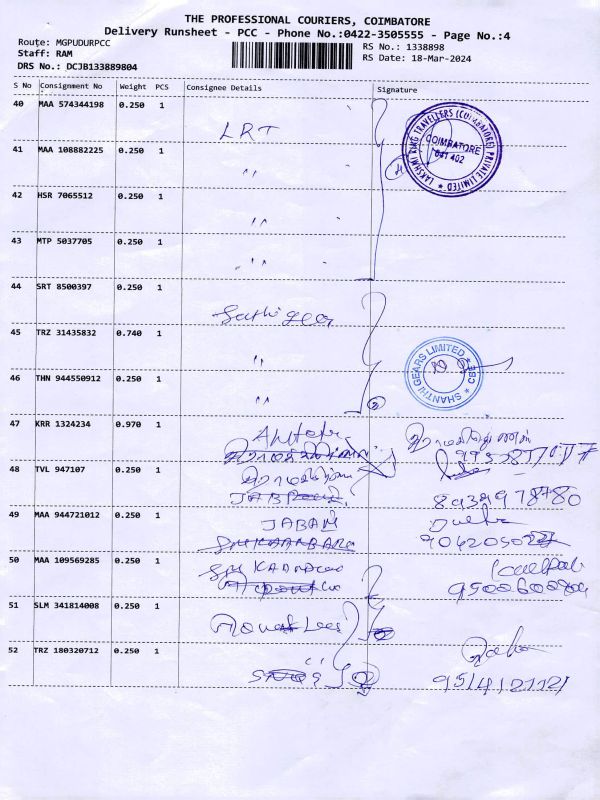 THE PROFESSIONAL COURIERS, COIMBATORE
Delivery Runsheet - PCC - Phone No.:0422-3505555 - Page No.:4
Route: MGPUDURPCC
RS No.: 1338898
Staff: RAM
RS Date: 18-Mar-2024
DRS No.: DCJB133889804
S No Consignment No Weight PCS Consignee Details Signature
40 MAA 574344198 0.250 1
LRT
LAKSHMI RING TRAVELLERS (COIMBATORE) PRIVATE LIMITED
COIMBATORE
641 402
41 MAA 108882225 0.250 1
"
42 HSR 7065512 0.250 1
"
43 MTP 5037705 0.250 1
"
44 SRT 8500397 0.250 1
45 TRZ 31435832 0.740 1
"
SHANTHI GEARS LIMITED
CBE
46 THN 944550912 0.250 1
"
47 KRR 1324234 0.970 1
48 TVL 947107 0.250 1
8939978780
49 MAA 944721012 0.250 1
JABAM
50 MAA 109569285 0.250 1
9500600804
51 SLM 341814008 0.250 1
52 TRZ 180320712 0.250 1